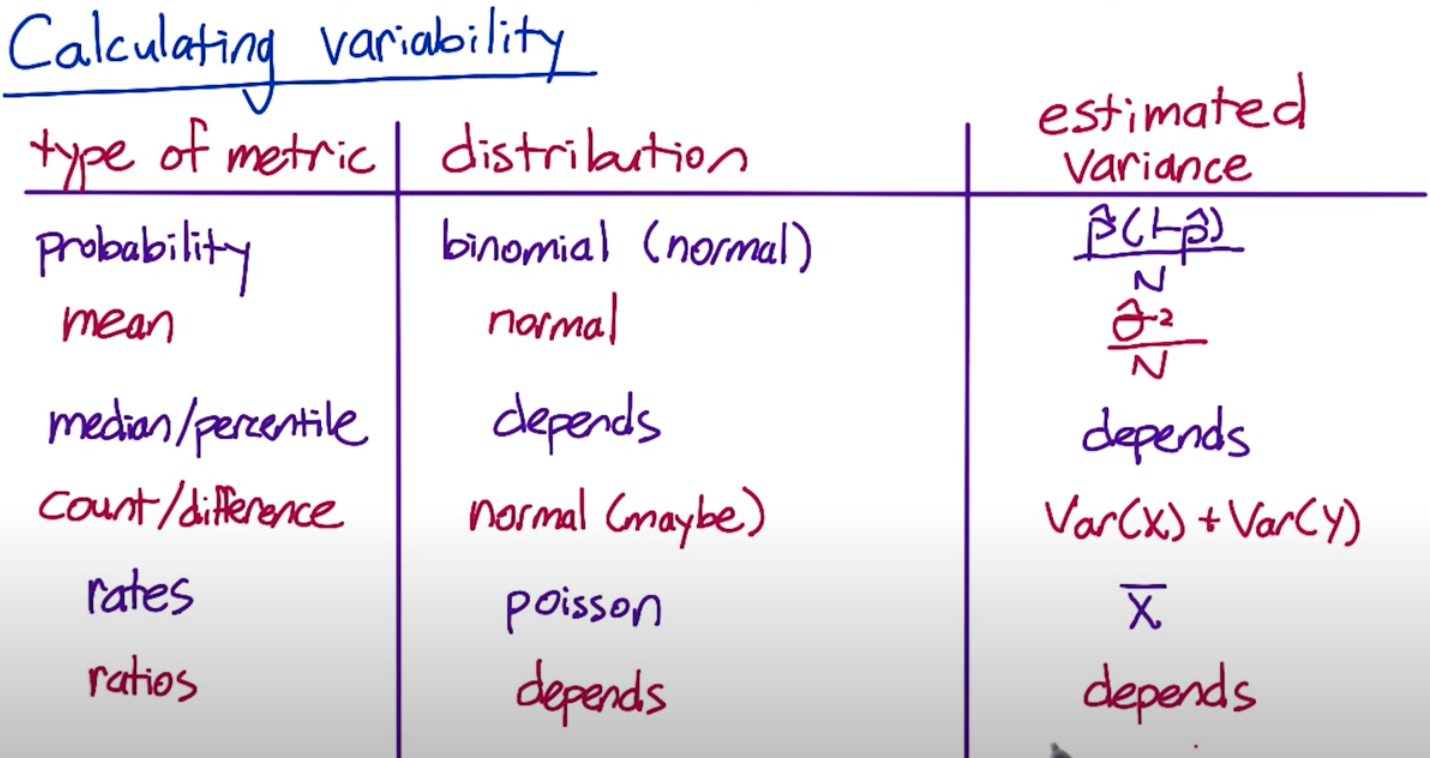 Calculating variability
type of metric distribution estimated variance
probability binomial (normal) p̂(1-p̂)/N
mean normal σ̂²/N
median/percentile depends depends
count/difference normal (maybe) Var(X) + Var(Y)
rates poisson X̅
ratios depends depends